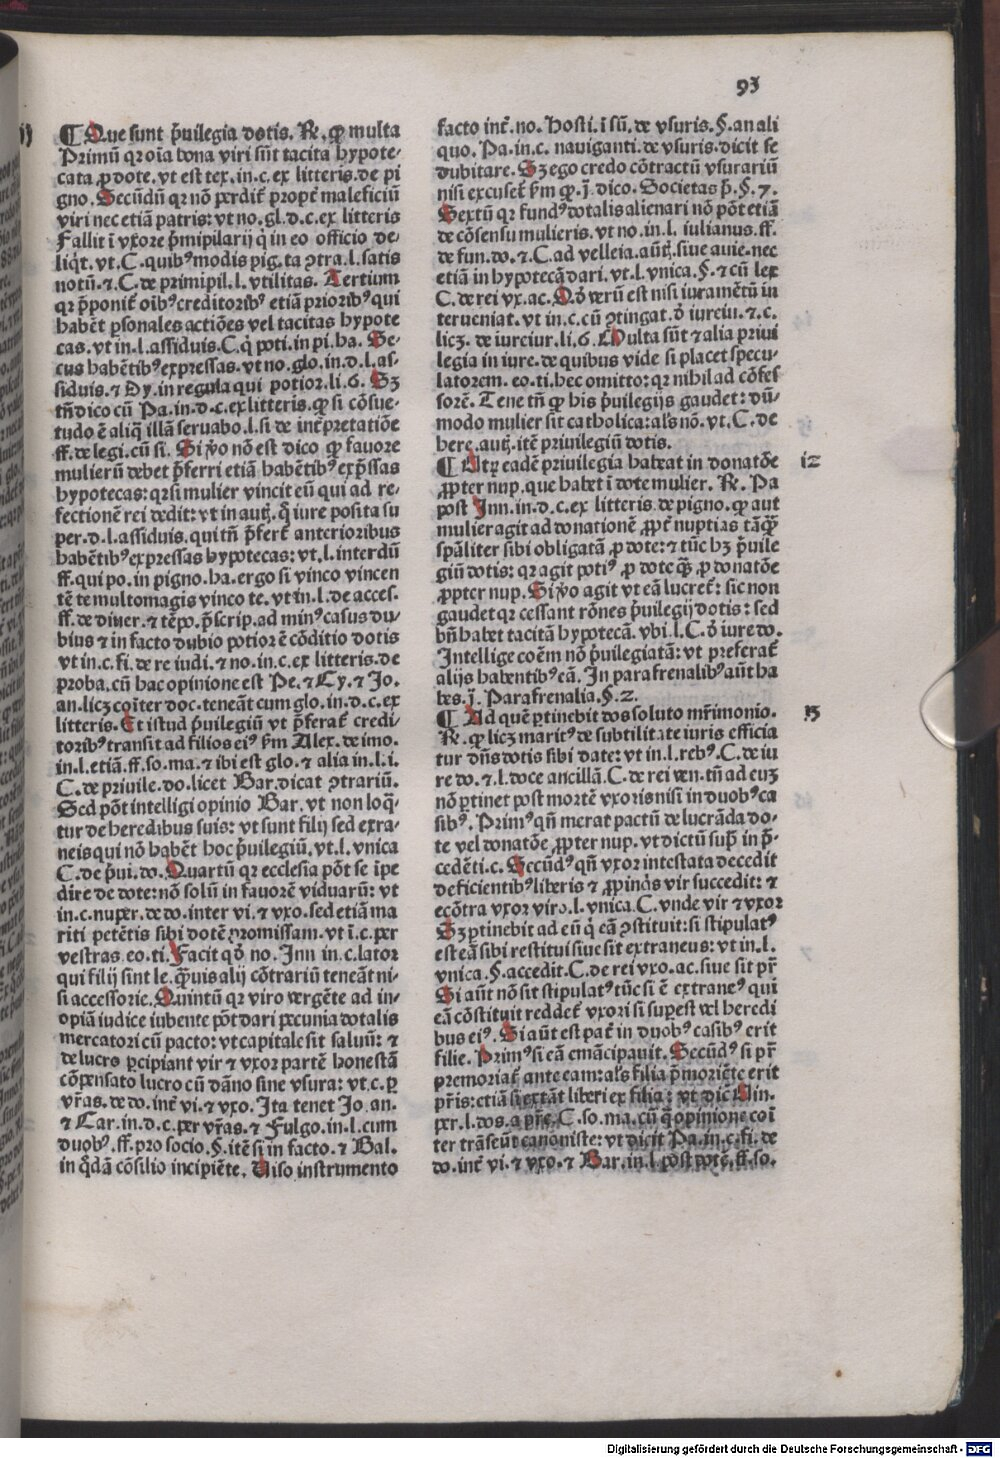 93
¶ Que sunt p̄uilegia dotis. R̄. ꝙ multa
Primū qr oīa bona viri sūt tacita hypote-
cata ꝓ dote. vt est tex. in. c. ex litteris. de pi
gno. Secūdū qr nō perdit̄ propt̄ maleficiū
viri nec etiā patris: vt no. gl. d. c. ex litteris
Fallit ī vxore p̄mipilarij q̇ in eo officio de-
liq̄t. vt. C. quibꝰ modis pig. ta ꝯtra. l. satis
notū. ⁊. C. de primipil. l. vtilitas. Tertium
qr p̄ponit̄ oībꝰ creditoribꝰ etiā prioribꝰ qui
habēt ꝑsonales actiōes vel tacitas hypote
cas. vt in. l. assiduis. C. q̇ poti. in pi. ha. Se-
cus habētibꝰ expressas. vt no. glo. in. d. l. as-
siduis. ⁊ Dy. in regula qui potior. li. 6. Sꝫ
tn̄ dico cū Pa. in. d. c. ex litteris. ꝙ si cōsue-
tudo ē aliq̇ illā seruabo. l. si de int̄pretatiōe
ff. de legi. cū si. Si v̊o nō est dico ꝙ fauore
mulierū debet p̄ferri etiā habētibꝰ exp̄ssas
hypotecas: qr si mulier vincit eū qui ad re-
fectionē rei dedit: vt in auth̄. q̄ iure posita su
per. d. l. assiduis. qui tn̄ p̄fert̄ anterioribus
habētibꝰ expressas hypotecas: vt. l. interdū
ff. qui po. in pigno. ha. ergo si vinco vincen
tē te multomagis vinco te. vt in. l. de acces.
ff. de diuer. ⁊ tēpo. p̄scrip. ad minꝰ casus du-
bius ⁊ in facto dubio potior ē cōditio dotis
vt in. c. fi. de re iudi. ⁊ no. in. c. ex litteris. de
proba. cū hac opinione est Pe. ⁊ Cy. ⁊ Jo.
an. licꝫ coīter doc. teneāt cum glo. in. d. c. ex
litteris. Et istud p̄uilegiū vt p̄ferat̄ credi
toribꝰ transit ad filios eiꝰ ẜm Alex. de imo.
in. l. etiā. ff. so. ma. ⁊ ibi est glo. ⁊ alia in. l. i.
C. de priuile. do. licet Bar. dicat ꝯtrariū.
Sed pōt intelligi opinio Bar. vt non loq̄-
tur de heredibus suis: vt sunt filij sed extra-
neis qui nō habēt hoc p̄uilegiū. vt. l. vnica
C. de p̄ui. do. Quartū qr ecclesia pōt se īpe
dire de dote: nō solū in fauorē viduarū: vt
in. c. nuper. de do. inter vi. ⁊ vxo. sed etiā ma
riti petētis sibi dotē ꝓmissam. vt ī. c. per
vestras. eo. ti. Facit qď no. Inn in. c. lator
qui filij sint le. q̄uis alij cōtrariū teneāt ni-
si accessorie. Quintū qr viro vergēte ad in-
opiā iudice iubente pōt dari pecunia dotalis
mercatori cū pacto: vt capitale sit saluū: ⁊
de lucro ꝑcipiant vir ⁊ vxor partē honestā
cōpensato lucro cū dāno sine vsura: vt. c. ꝑ
vr̄as. de do. int̄ vi. ⁊ vxo. Ita tenet Jo. an.
⁊ Car. in. d. c. per vr̄as. ⁊ Fulgo. in. l. cum
duobꝰ. ff. pro socio. §. itē si in facto. ⁊ Bal.
in q̇dā cōsilio incipiēte. Uiso instrumento
facto int̄. no. Hosti. ī sū. de vsuris. §. an ali
quo. Pa. in. c. nauiganti. de vsuris. dicit se
dubitare. Sꝫ ego credo cōtractū vsurariū
nisi excuset̄ ẜm ꝙ. j̄. dico. Societas p̄. §. 7.
Sextū qr fundꝰ dotalis alienari nō pōt etiā
de cōsensu mulieris. vt no. in. l. iulianus. ff.
de fun. do. ⁊. C. ad velleia. auth̄. siue a me. nec
etiā in hypotecā dari. vt. l. vnica. §. ⁊ cū lex
C. de rei vx. ac. Qď verū est nisi iuramētū in
terueniat. vt in. c. cū ꝯtingat. ď iureiu. ⁊. c.
licꝫ. de iureiur. li. 6. Multa sūt ⁊ alia priui
legia in iure. de quibus vide si placet specu-
latorem. eo. ti. hec omitto: qr nihil ad cōfes
sorē. Tene tn̄ ꝙ his p̄uilegijs gaudet: dū-
modo mulier sit catholica: als̄ nō. vt. C. de
here. auth̄. itē priuilegiū dotis.
¶ Utꝝ eadē priuilegia habeat in donatōe 12
ꝓpter nup. que habet ī dote mulier. R̄. Pa
post Inn. in. d. c. ex litteris. de pigno. ꝙ aut
mulier agit ad donationē ꝓpt̄ nuptias tāꝙ̄
spāliter sibi obligatā ꝓ dote: ⁊ tūc hꝫ p̄uile
giū dotis: qr agit potiꝰ ꝓ dote q̄ꝫ ꝓ donatōe
ꝓpter nup. Si v̊o agit vt eā lucret̄: sic non
gaudet qr cessant rōnes p̄uilegij dotis: sed
bn̄ habet tacitā hypotecā. vbi. l. C. ď iure do.
Intellige coēm nō p̄uilegiatā: vt preferat̄
alijs habentibꝰ eā. In parafrenalibꝰ aūt ha
bes. j̄. Parafrenalia. §. 2.
¶ Ad quē ꝑtinebit dos soluto mr̄imonio. 13
R̄. ꝙ licꝫ maritꝰ de subtilitate iuris efficia
tur dn̄s dotis sibi date: vt in. l. rebꝰ. C. de iu
re do. ⁊. l. doce ancillā. C. de rei ven. tn̄ ad euꝫ
nō ꝑtinet post mortē vxoris nisi in duobꝰ ca
sibꝰ. Primꝰ qn̄ interat pactū de lucrāda do-
te vel donatōe ꝓpter nup. vt dictū sup̄ in p̄-
cedēti. c. Secūdꝰ qn̄ vxor intestata decedit
deficientibꝰ liberis ⁊ ꝓpinq̇s vir succedit: ⁊
ecōtra vxor viro. l. vnica. C. vnde vir ⁊ vxor
Sꝫ ꝑtinebit ad eū q̇ eā ꝯstituit: si stipulatꝰ
est eā sibi restitui siue sit extraneus: vt in. l.
vnica. §. accedit. C. de rei vxo. ac. siue sit pr̄
Si aūt nō sit stipulatꝰ tūc si ē extraneꝰ qui
eā cōstituit reddet̄ vxori si suꝑest vel heredi
bus eiꝰ. Si aūt est pat̄ in duobꝰ casibꝰ erit
filie. Primꝰ si eā emācipauit. Secūdꝰ si pr̄
premoriat̄ ante eam: als̄ filia p̄moriēte erit
pr̄is: etiā si extāt liberi ex filia: vt dic̄ Cin.
per. l. dos. a pr̄e. C. so. ma. cū q̄ opinione coī
ter trāseūt canoniste: vt dicit Pa. in. c. fi. de
do. int̄ vi. ⁊ vxo. ⁊ Bar. in. l. post dotē. ff. so.
Digitalisierung gefördert durch die Deutsche Forschungsgemeinschaft - DFG